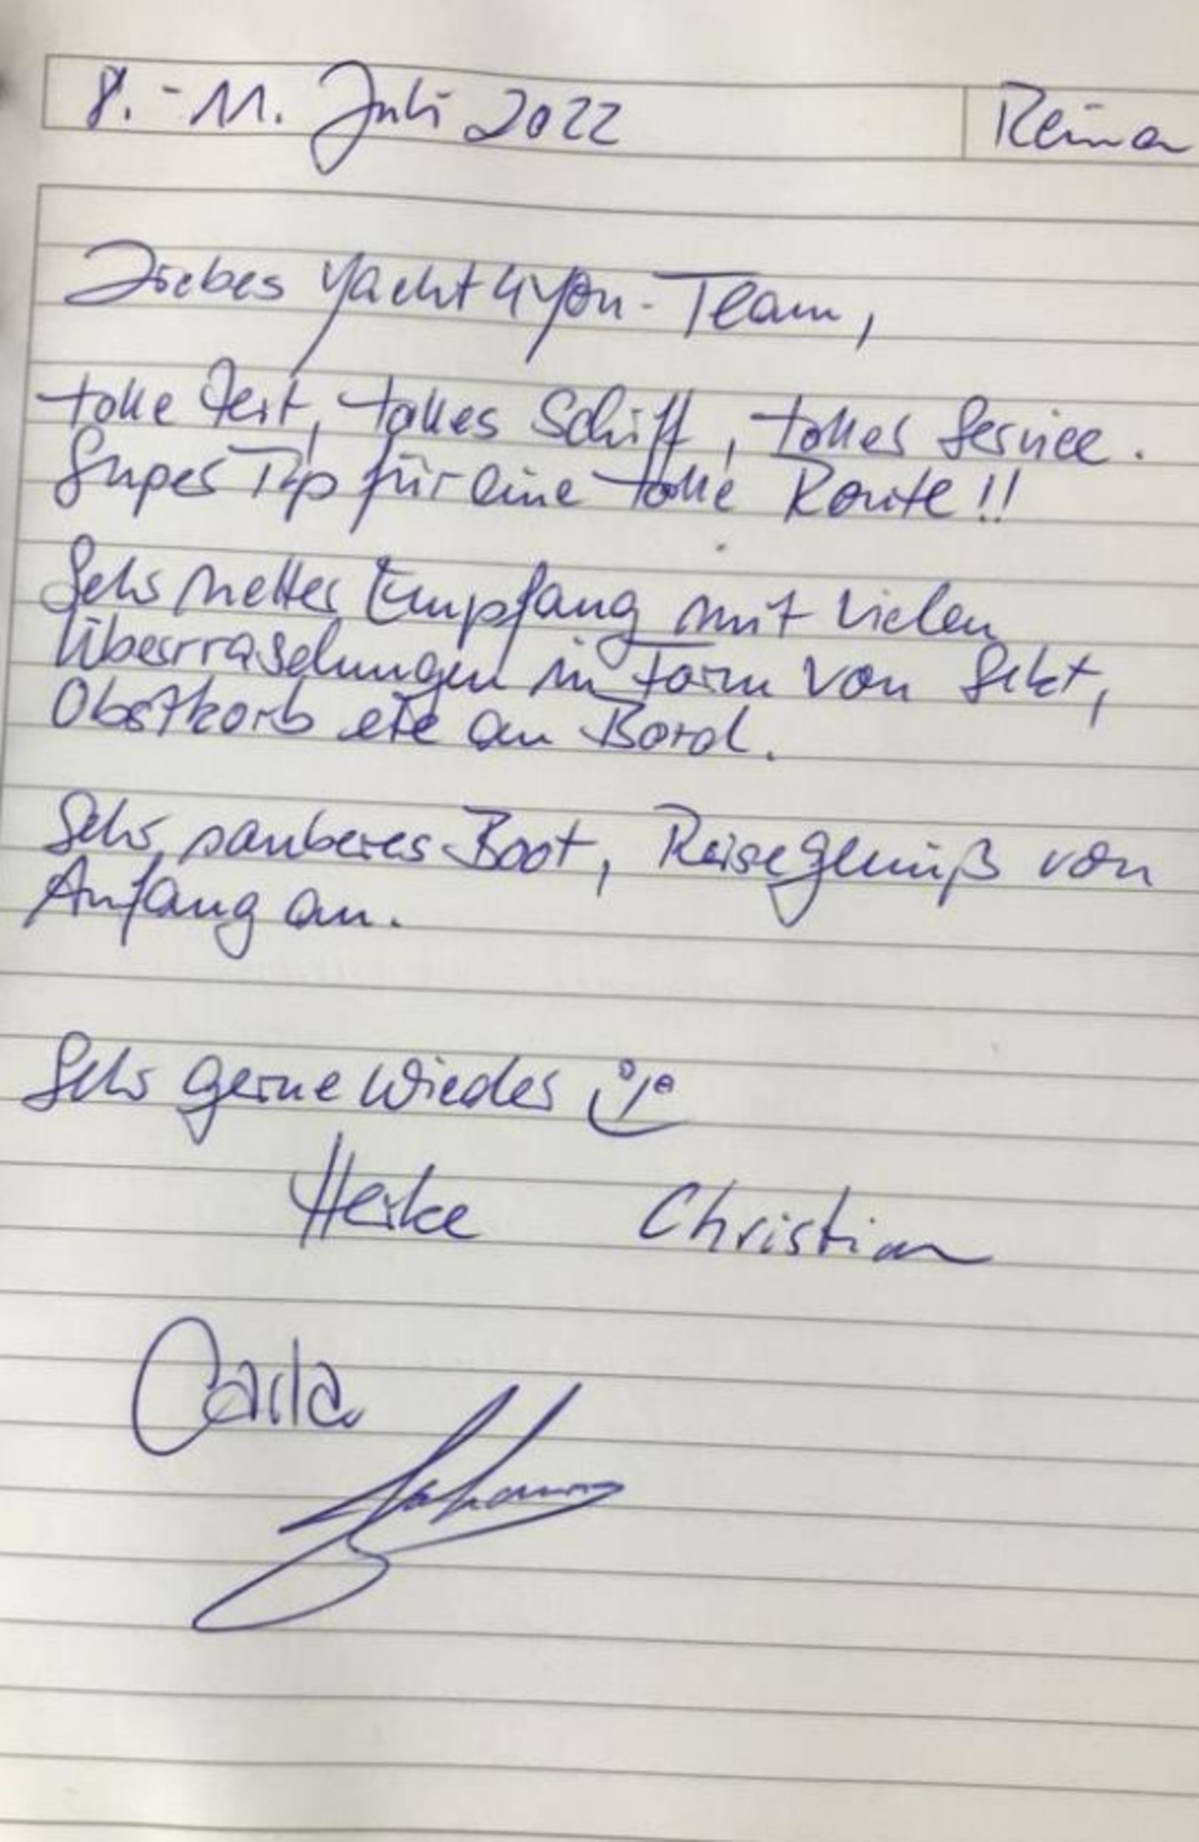 8.-11. Juli 2022 Reima
Liebes Yacht4You-Team,
tolle Zeit, tolles Schiff, toller Service.
Super Tip für eine tolle Route!!
Sehr netter Empfang mit vielen
Überraschungen in Form von Sekt,
Obstkorb etc an Bord.
Sehr sauberes Boot, Reisegenuß von
Anfang an.
Sehr gerne wieder
Heike Christian
Carla
Johannes